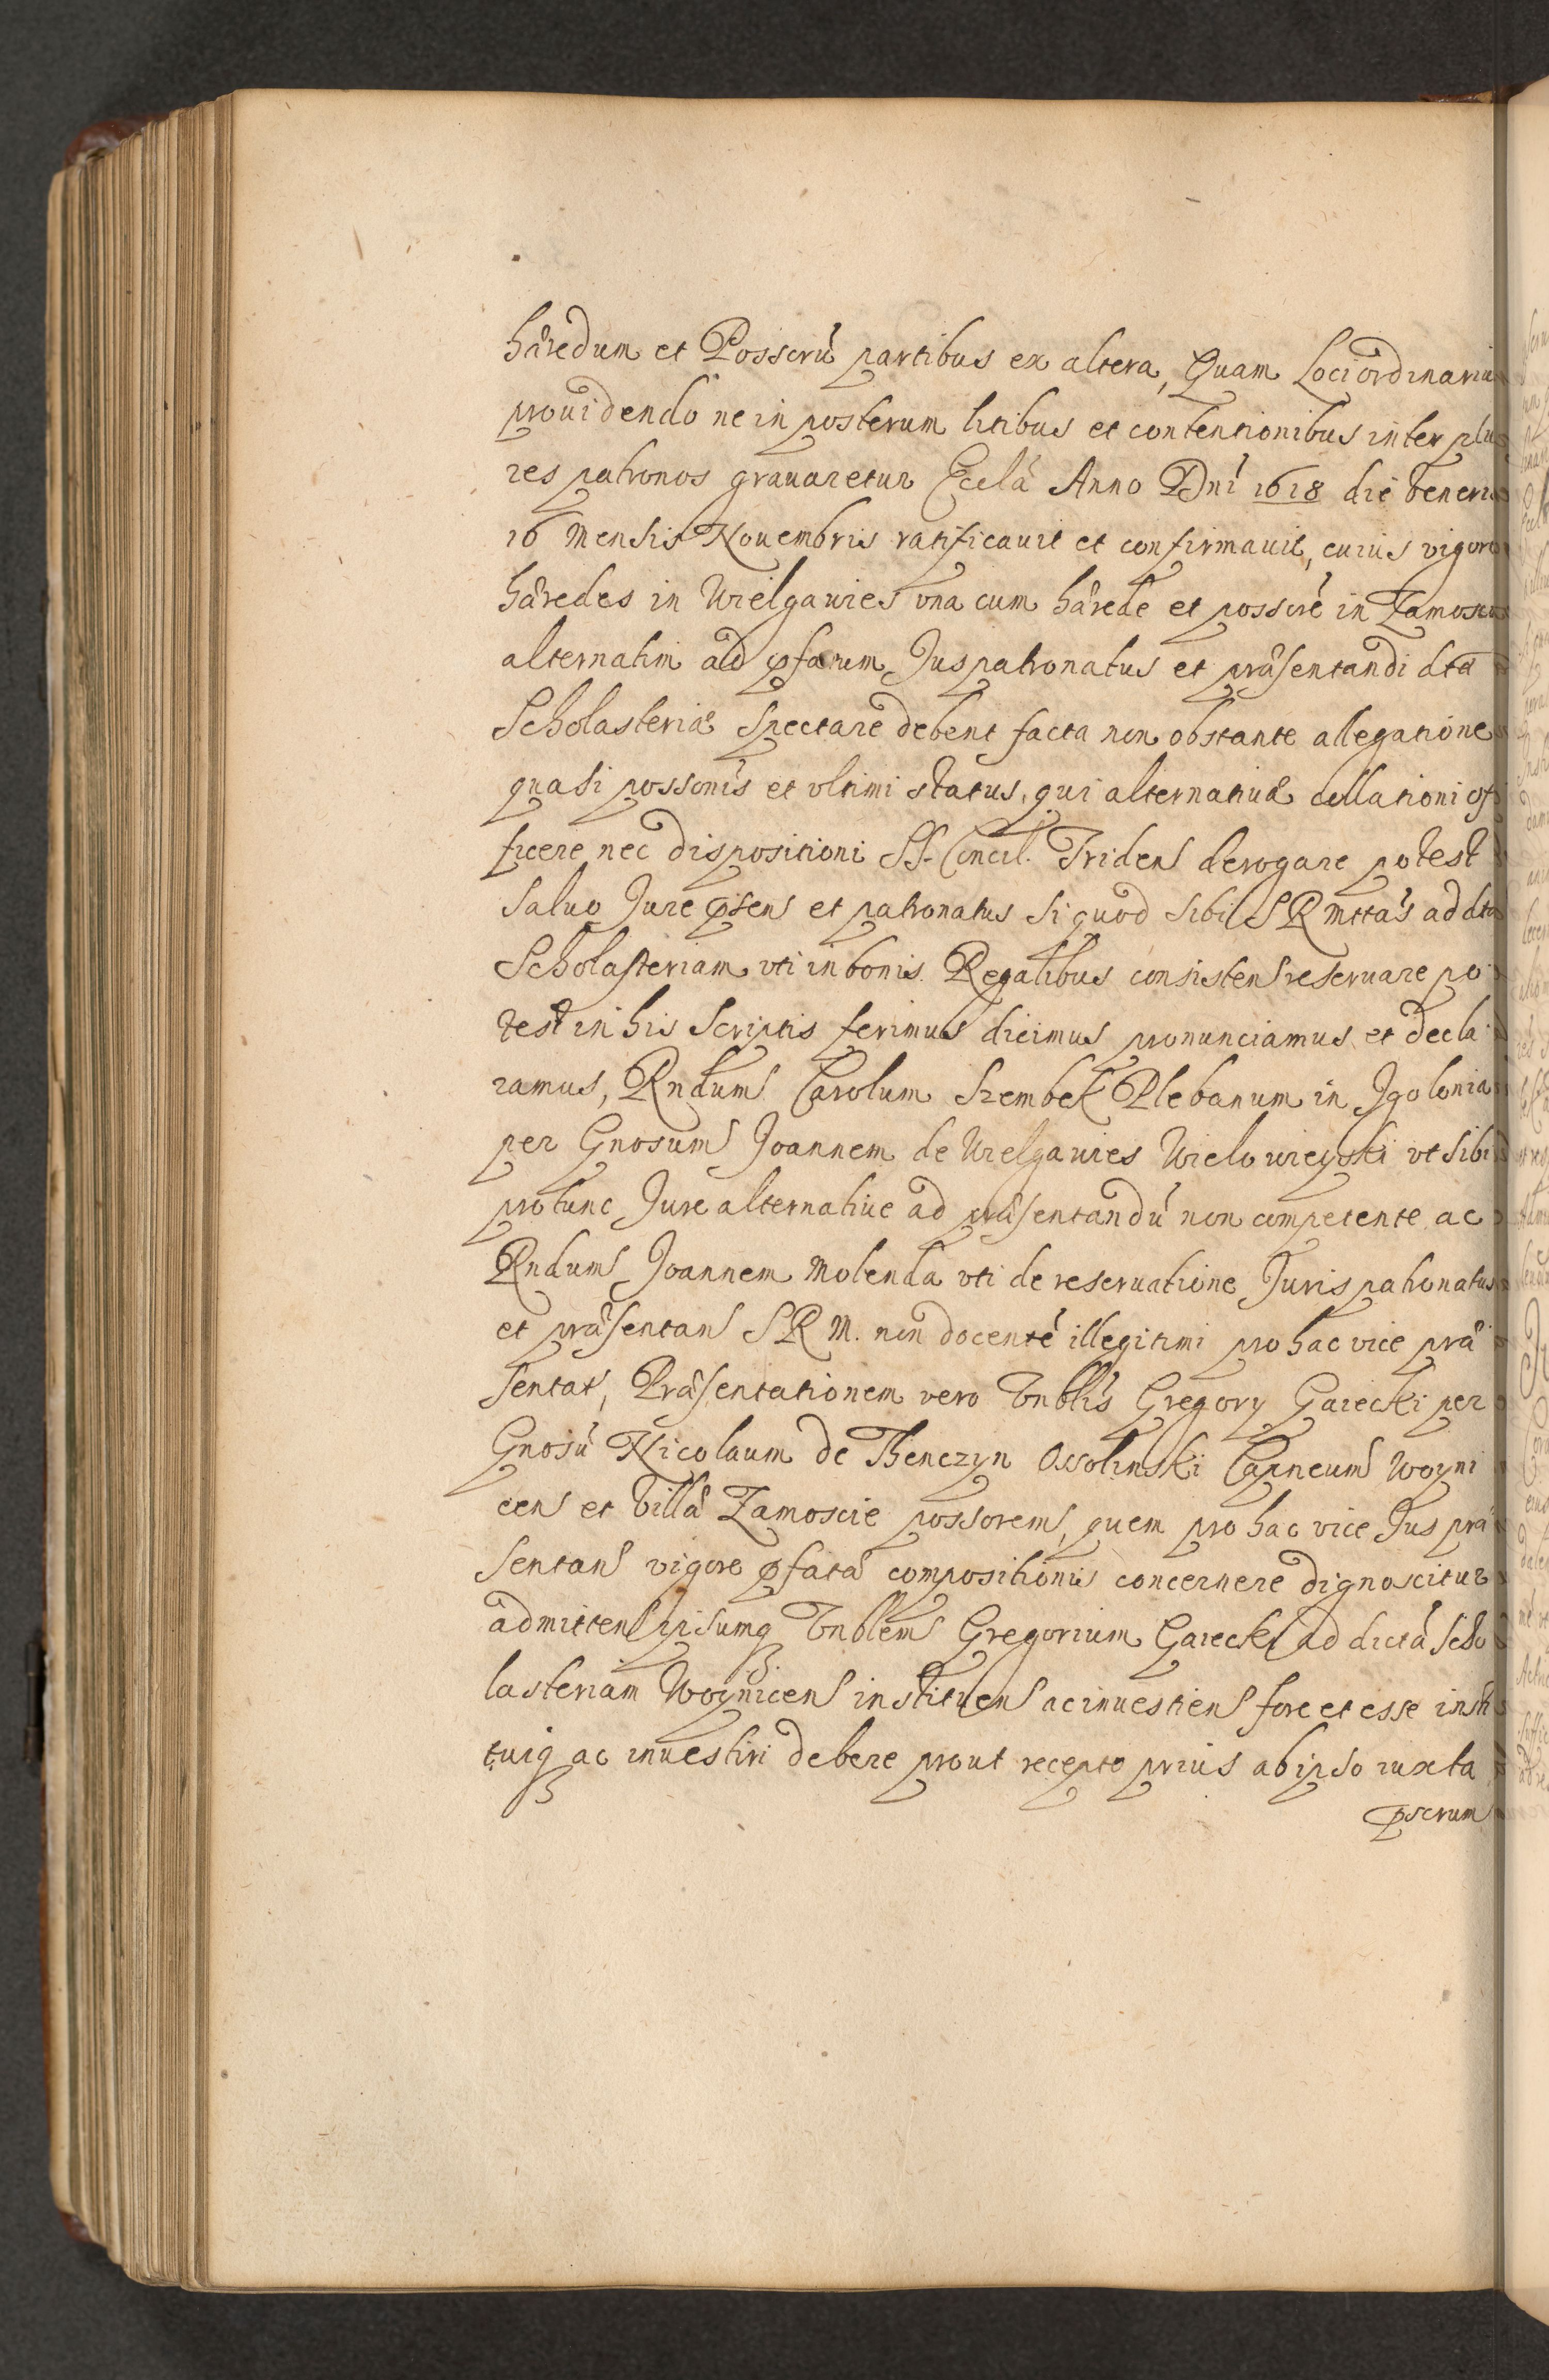 hæredum et Possorũ partibus ex altera, Quam Loci ordinariu
prouidendo ne in posterum litibus et contentionibus inter plu
res patronos grauaretur Ecclã Anno Dnĩ 1618 die Veneris
16 Mensis Nouembris ratificauit et confirmauit, cuius vigore
hæredes in Wielgawies vna cum hærede et possore in Zamoscie
alternatim ad pfatum Juspatronatus et præsentandi dtã
Scholasteriæ spectare debent facta non obstante allegatione
quasi possonis et vltimi status, qui alternatiuæ collationi of
ficere nec dispositioni SS. Concil. Triden derogare potest
Saluo Jure psen et patronatus si quod sibi SRMttas ad dtã
Scholasteriam vti in bonis Regalibus consisten reseruare po
test in his scriptis ferimus dicimus pronunciamus et decla
ramus, Rndum Carolum Szembek Plebanum in Jgolonia
per Gnosum Joannem de Wielgawies Wielowieyski vt sibi
protunc Jure alternatiue ad præsentandũ non competente ac
Rndum Joannem Molenda vti de reseruatione Juris patronatus
et præsentan SRM. non docente illegitimi pro hac vice præ
sentat, Præsentationem vero Vnblis Gregory Gaiecki per
Gnosũ Nicolaum de Thenczyn Ossolinski Capneum Woyni
cen et Villæ Zamoscie possorem, quem pro hac vice Jus præ
sentan vigore pfatæ compositionis concernere dignoscitur
admitten ipsumq Vnblem Gregorium Gaiecki ad dictã Scho
lasteriam Woynicen instituen ac inuestien fore et esse insti
tuiq ac inuestiri debere prout recepto prius ab ipso iuxta
pscrum